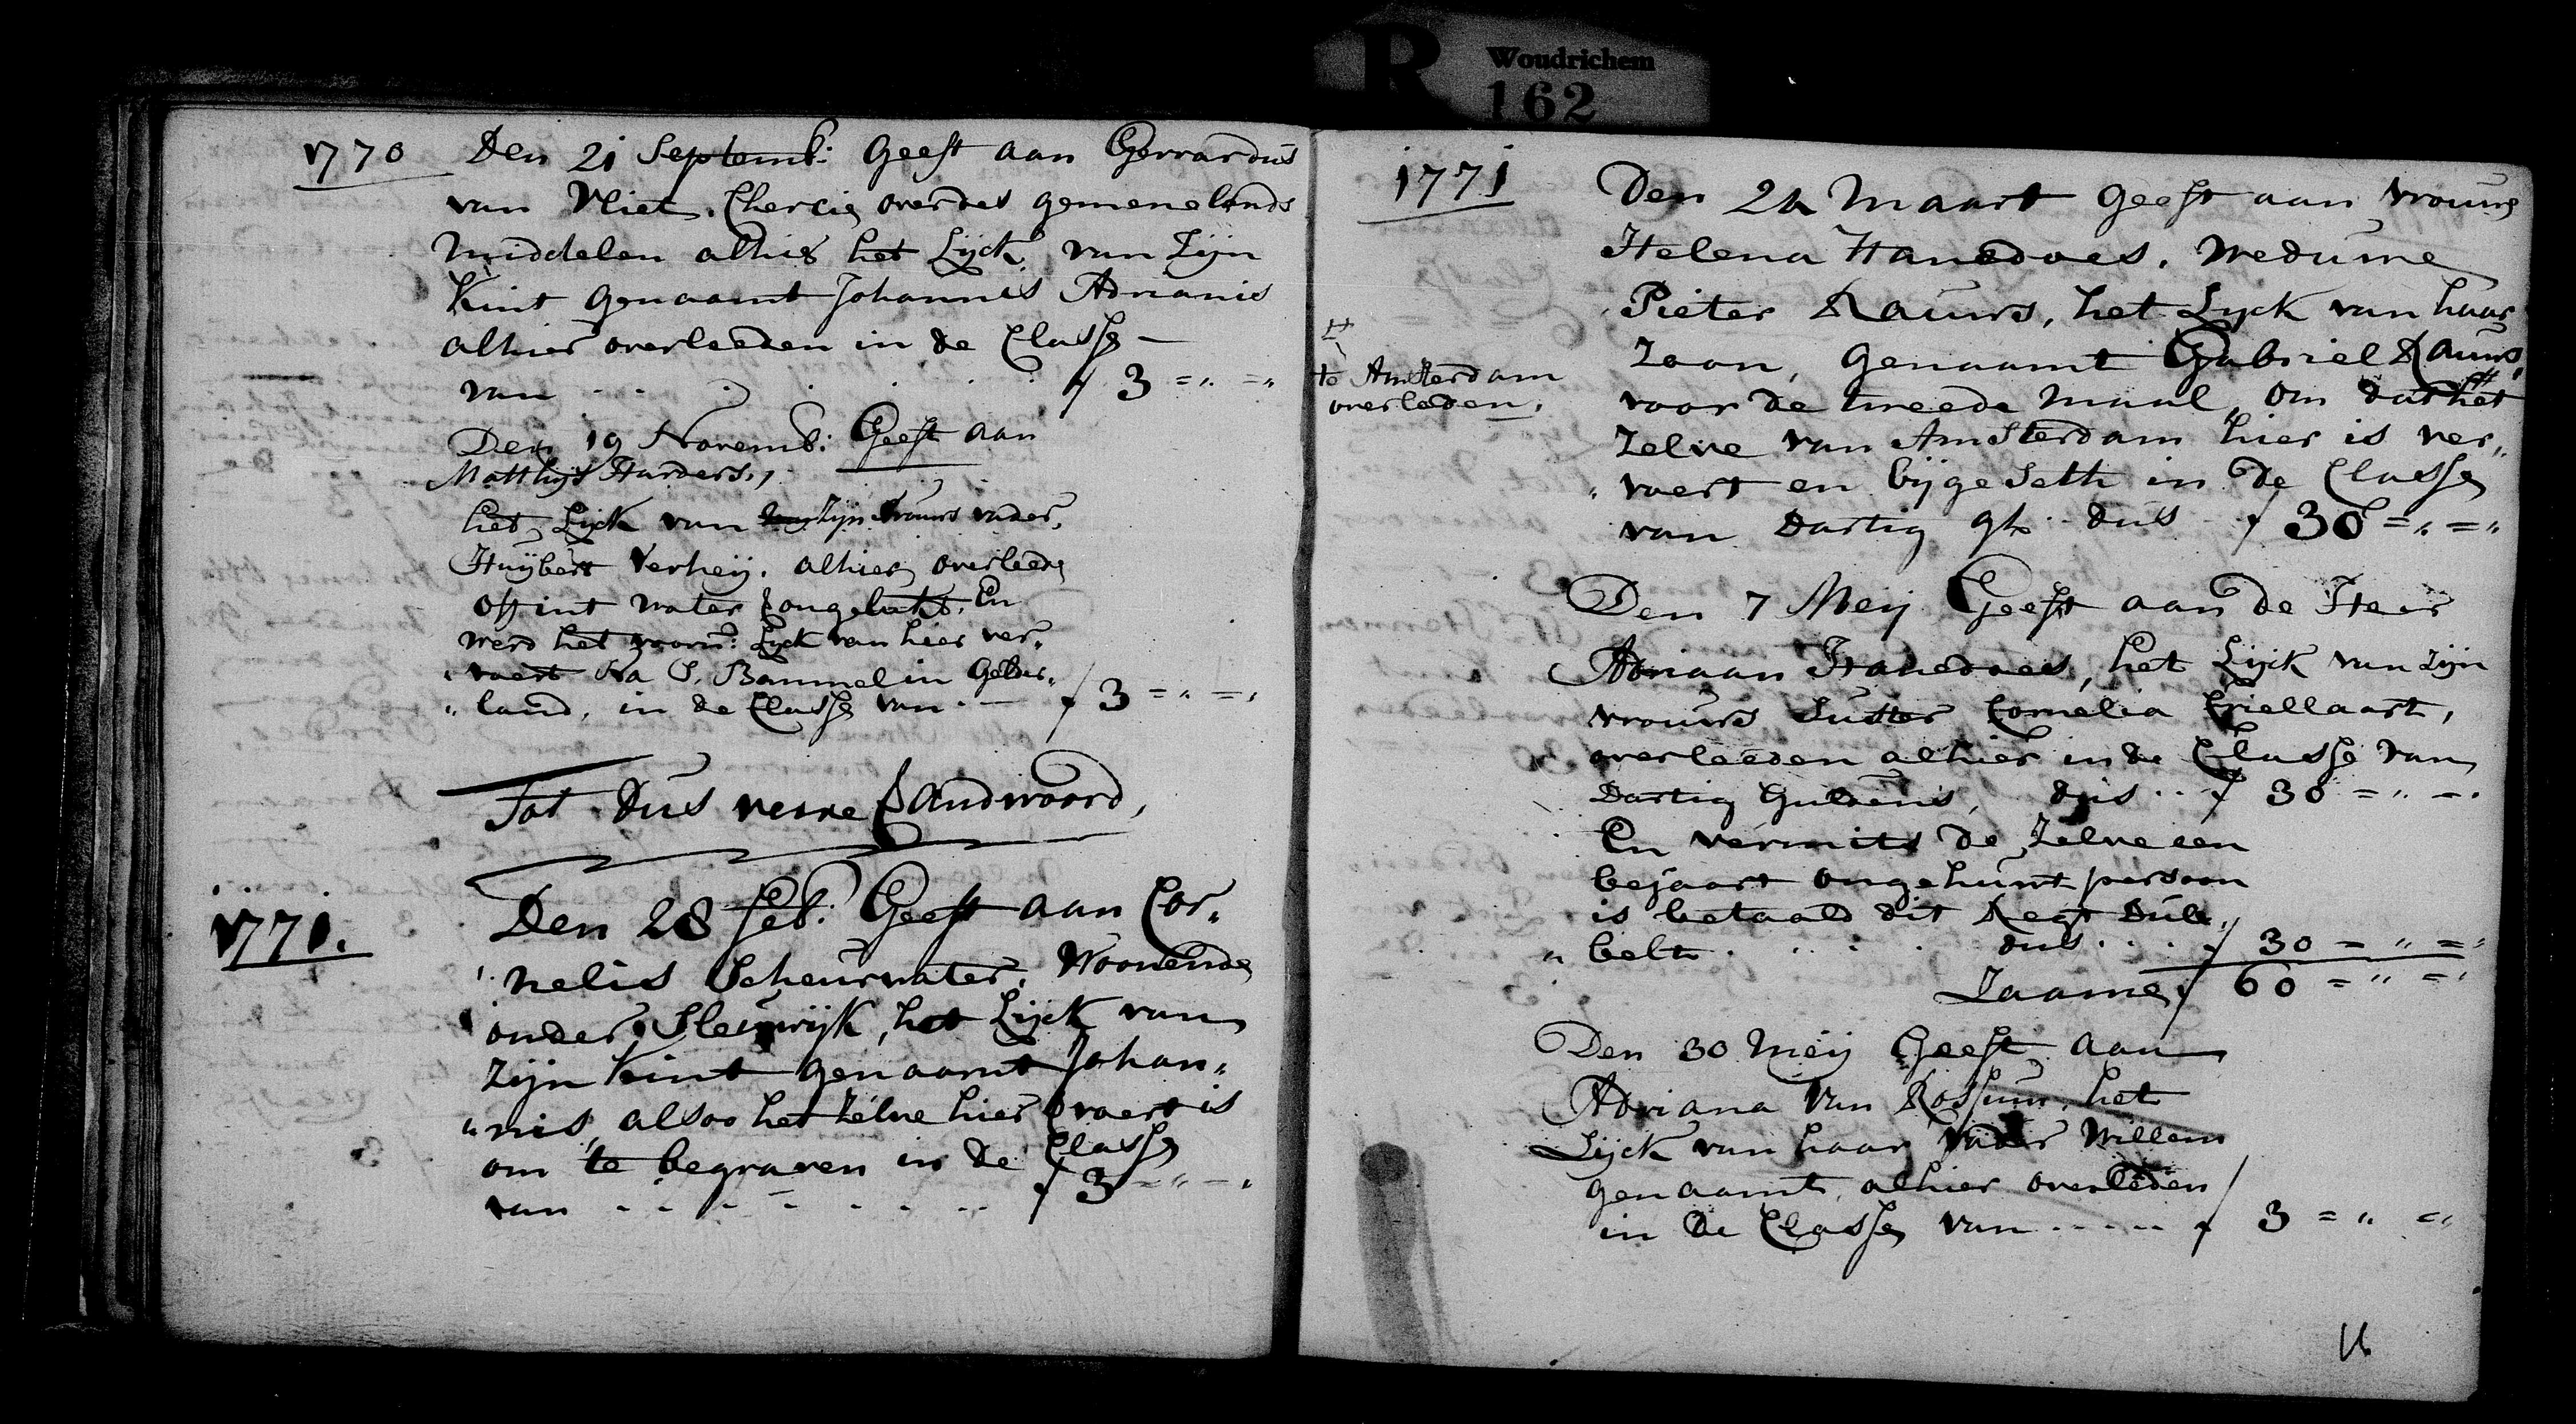 Woudrichem
162
1770 Den 21 Septemb: Geeft aan Gerrardus
van Vliet, Chercig over des gemenelands
middelen alhier het Lijck van Zijn
Kint genaamt Johannis Adrianis
alhier overleeden in de Classe
van . . . . . . f 3 = " = "
Den 19 Novemb: Geeft aan
Matthijs Harders,
het Lijck van Zijn vrouws vader,
Huijbert Verheij, alhier overleeden
off int water verongelukt, En
werd het voorn: Lijck van hier ver„
„voert na S. Bammel in Gelder„
„land, in de Classe van . — f 3 = " = "
Tot dus verre verandwoord,
1771. Den 28 feb: Geeft aan Cor„
„nelis Scheurwater, Woonende
onder Sleuwijk, het Lijck van
Zijn Kint genaamt Johan„
„nis, alsoo het Zelve hier vervoert is
om te begraven in de Classe
van . . . . . . . f 3 = " = "
1771 Den 24 Maart Geeft aan Vrouwe
Helena Hanedoes, Weduwe
Pieter Rauws, het Lyck van haar
Zoon, Genaamt Gabriel Rauws,
# te Amsterdam
overleden,
voor de tweede maal, Om dat # het
Zelve van Amsterdam hier is ver„
„voert en bijgeseth in de Classe
van Dartig gl: dus f 30 = " = "
Den 7 Meij Geeft aan de Heer
Adriaan Hanedoes, het Lijck van Zijn
vrouws Suster Cornelia Criellaart,
overleeden alhier in de Classe van
Dartig Guldens, dus . . f 30 = " = "
En vermits de Zelve een
bejaart ongehuwt persoon
is betaald dit Regt Dub„
„belt . . . . dus . . . f 30 = " = "
Zaame f 60 = " = "
Den 30 Meij Geeft aan
Adriana Van Rossum, het
Lijck van haar Vader Willem
genaamt, alhier overleden
in de Classe van . . . . . f 3 = " = "